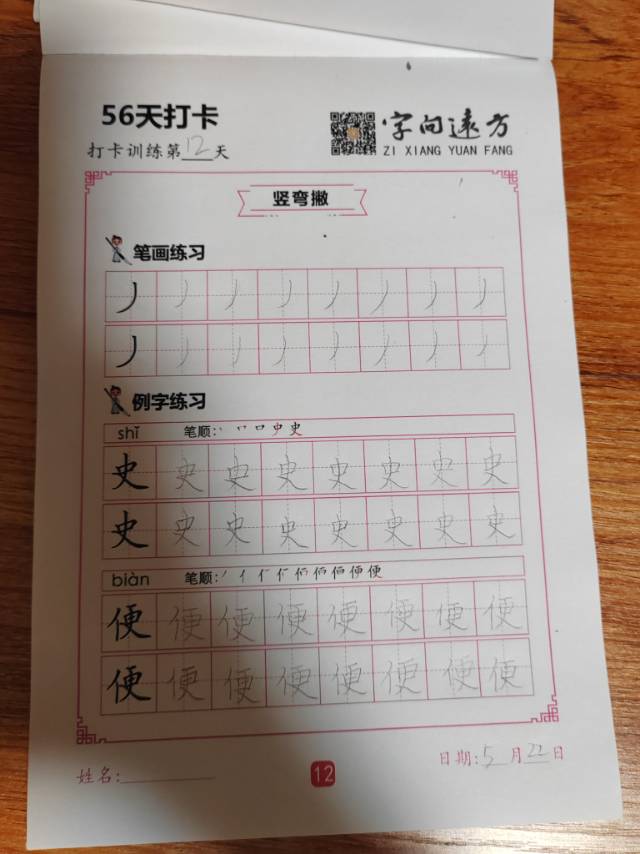 56天打卡
字向远方
打卡训练第12天
ZI XIANG YUAN FANG
竖弯撇
笔画练习
丿丿丿丿丿丿丿丿
丿丿丿丿丿丿丿丿
例字练习
shǐ 笔顺: 丨 𠃍 口 史 史
史史史史史史史史
史史史史史史史史
biàn 笔顺:
便便便便便便便便
便便便便便便便便
姓名: 12 日期: 5月22日